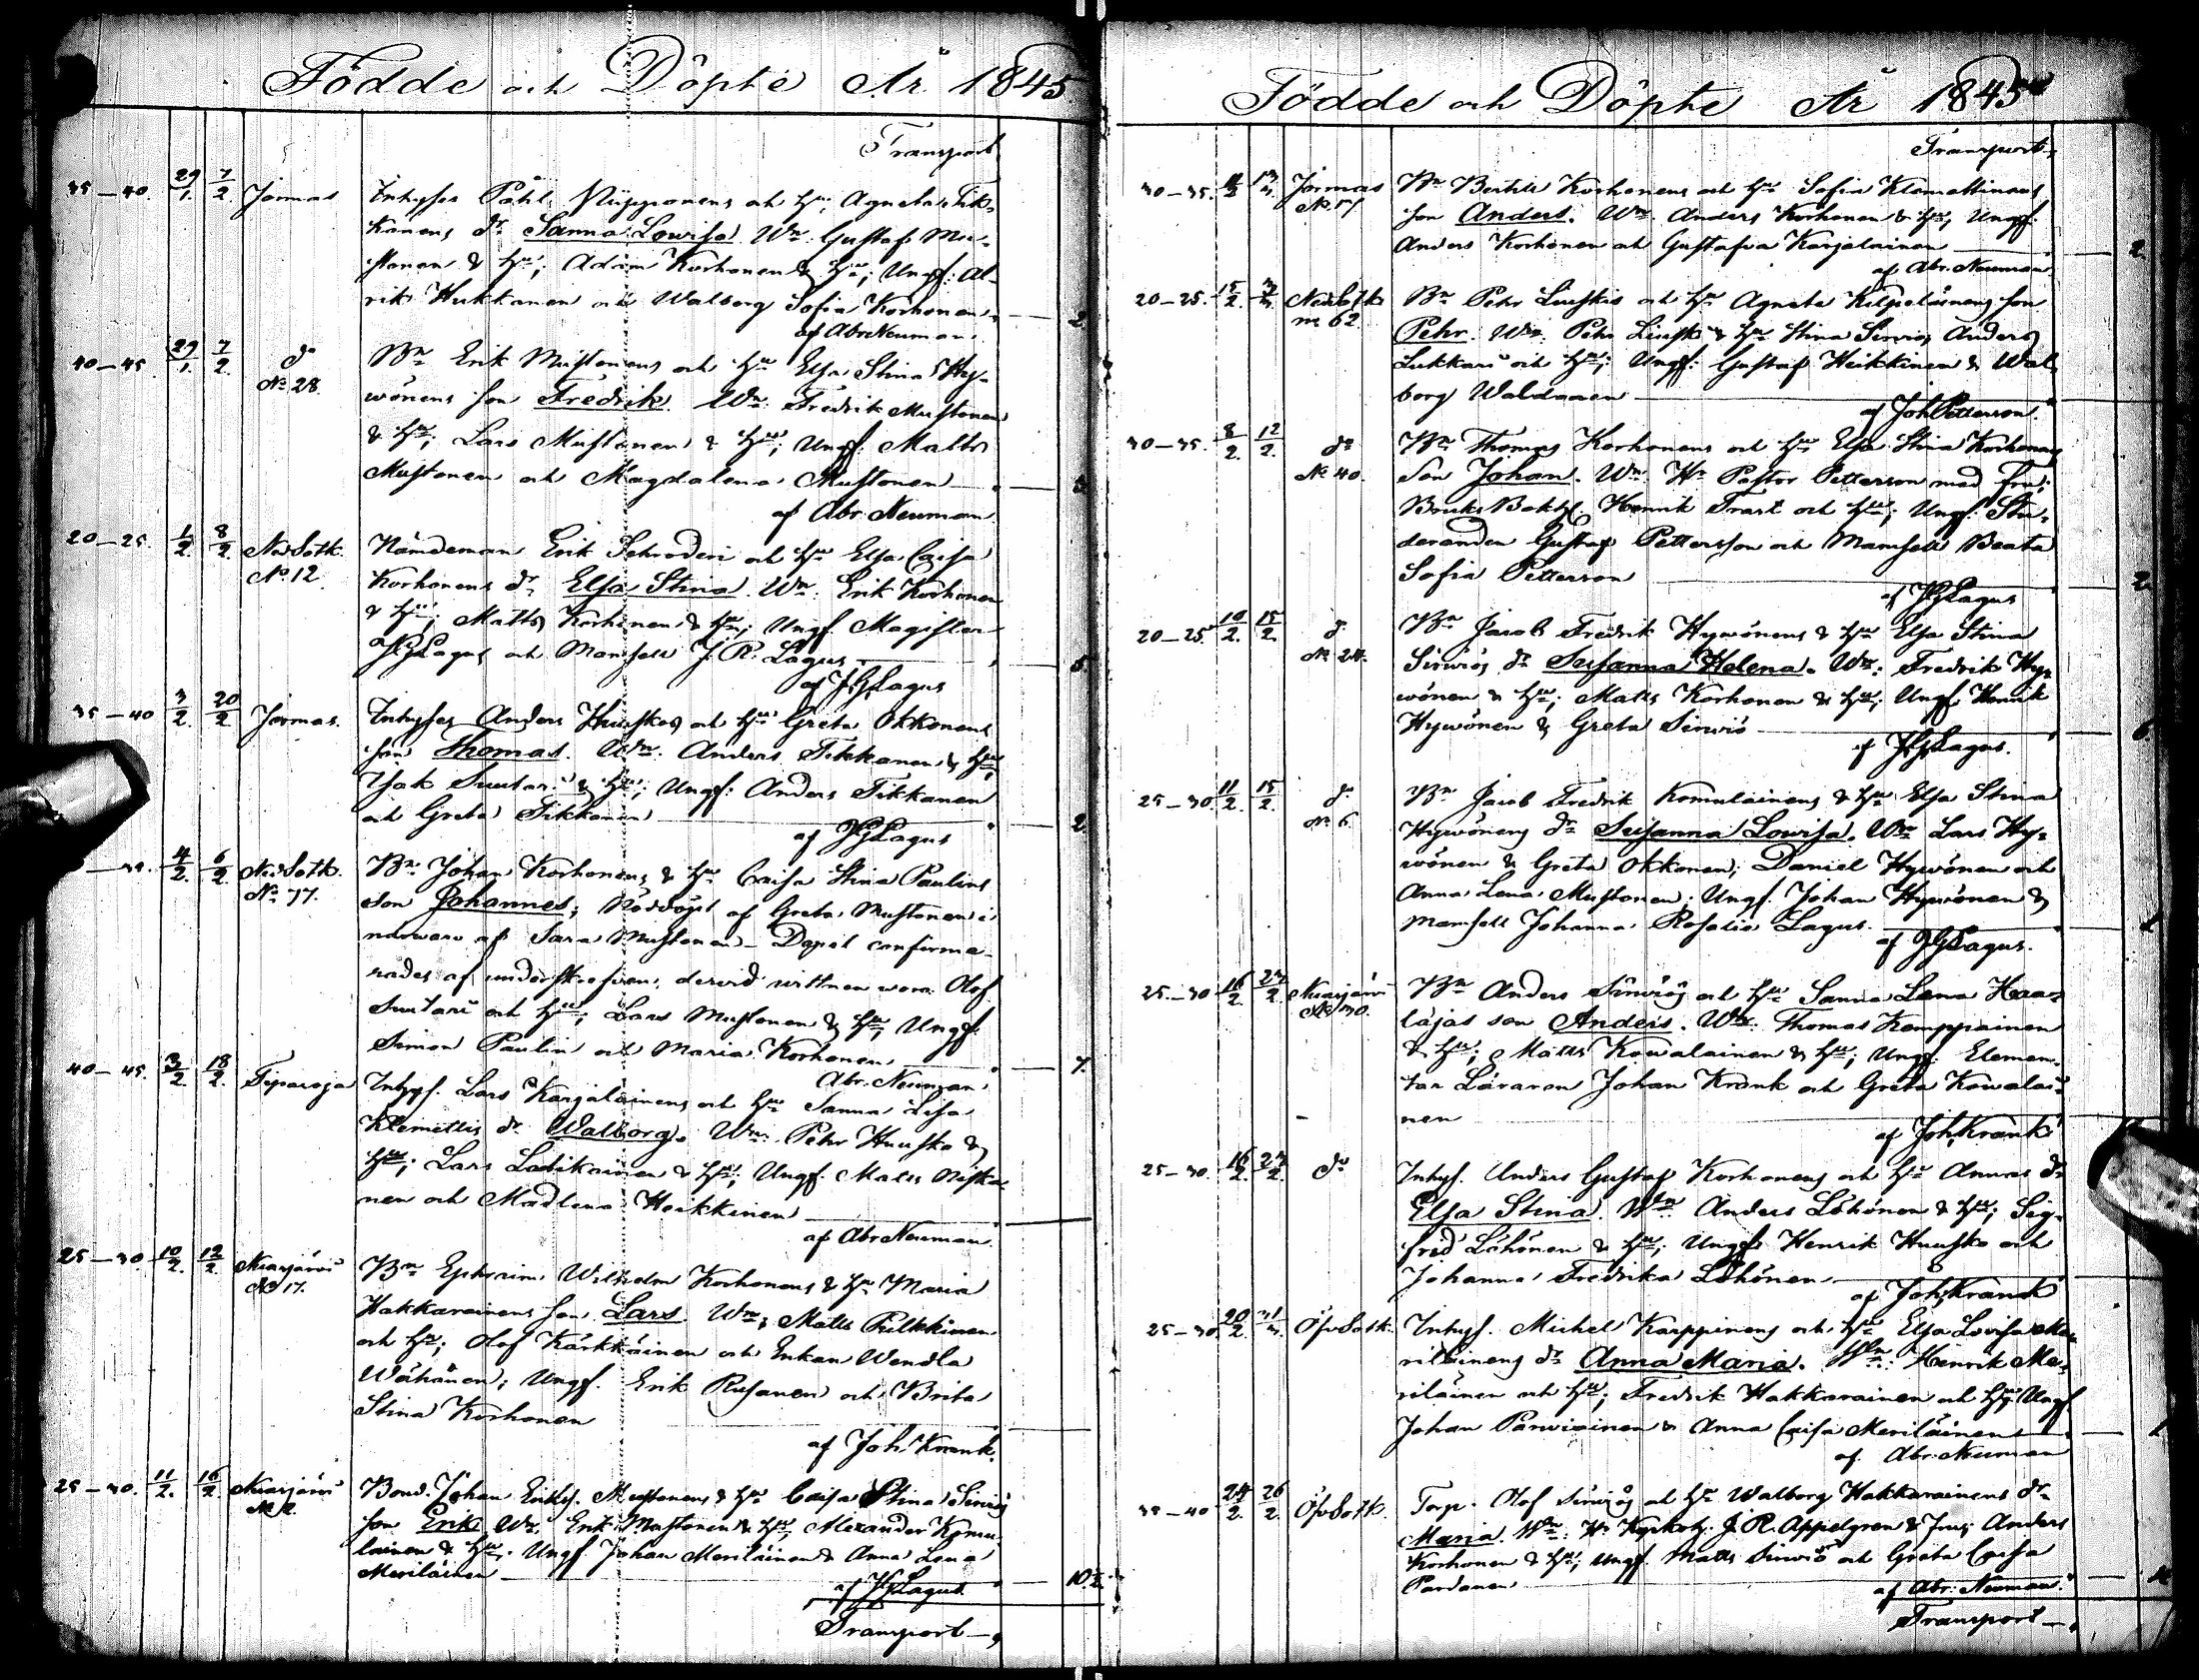 Födde och Döpte År 1845
Transport,
35–40. 29/1. 7/2. Jormas Inhyses Påhl Nipponens och hu; Agneta Tik-
kanens dr. Sanna Lowisa. Wn. Gustaf Mu-
stonen & hu; Adam Korhonen & hu; Ungf: Al-
rik Hukkanen och Walborg Sofia Korhonen 2
af Abr Neuman.
40–45. 29/1. 7/2. do Bn Erik Mustonens och hu Elsa Stina Hy-
No 28. wönens son Fredrik. Wn. Fredrik Mustonen
& hu; Lars Mustonen & hu; Ungf. Matts
Mustonen och Magdalena Mustonen
af Abr. Neuman
20–25. 1/2 8/2 Ned Sotk. Nämdeman Erik Schroderi och hu Elsa Caisa
No 12. Korhonens dr. Elsa Stina. Wn. Erik Korhonen
& hu; Matts Korhonen & hu; Ungf. Magister
JGLagus och Mamsell J. R. Lagus 5.
af JGLagus
35–40 3/2. 20/2 Jormas. Inhyses Anders Huuskos och hu Greta Okkonens
son Thomas. Wn. Anders Tikkanen & hu;
Isak Suutari & hu; Ungf: Anders Tikkanen
och Greta Tikkanen 2
af JGLagus
4/2. 6/2 Ned Sotk. Bn Johan Korhonens & hu Caisa Stina Paulins
No 77. son Johannes; Nöddöpt af Greta Mustonen i
närwaro af Sara Mustonen – Dopet confirme-
rades af underskrefven, derwid wittnen woro Olof
Suutari och hu; Lars Mustonen & hu; Ungf:
Simon Paulin och Maria Korhonen 7.
Abr. Neuman
40–45. 3/2 18/2. Tipasoja Inhysf. Lars Karjalainens och hu Sanna Lisa
Klemettis dr. Walborg. Wn. Pehr Huusko &
hu; Lars Ladikainen & hu; Ungf. Matts Niska-
nen och Madlena Heikkinen
af Abr Neuman.
25–30. 10/2. 12/2. Nuasjärvi Bn Ephraim Wilhelm Korhonens & hu Maria
No 17. Hakkarainens son Lars. Wn; Matts Pulkkinen
och hu; Olof Kärkkäinen och Enkan Wendla
Wähänen; Ungf. Erik Rusanen och Brita
Stina Korhonen
af Joh. Krank.
25–30. 11/2. 16/2. Nuasjärvi Bond. Johan Eriks. Mustonens & hu Caisa Stina Sirwiös
No 2. son Erik Wn. Erik Mustonen & hu; Alexander Komu-
lainen & hu; Ungf. Johan Meriläinen & Anna Lena
Meriläinen 10.
af JGLagus
Transport
Födde och Döpte År 1845
Transport,
30–35. Jormas Bn Bertils Korhonens och hu Sofia Klemettinens
son Anders. Wn. Anders Korhonen & hu; Ungf.
Anders Korhonen och Gustafva Karjalainen 2.
af Abr. Neuman
20–25. 15/2. Ned Sotk. Bn Pehr Liuskis och hu Agneta Kilpeläinens son
no 62. Pehr. Wn. Pehr Liuski & hu Stina Sirwiö; Anders
Lukkari och hu; Ungf: Gustaf Heikkinen & Wal-
borg Waldanen
af Joh Petterson.
30–35. 8/2. 12/2. do Bn Thomas Korhonens och hu Elsa Stina Korhonens
No 40. Son Johan. Wn. Hr Pastor Petterson med Fru;
Bruks Bokh. Henrik Trast och hu; Ungf. Stu-
deranden Gustaf Petterson och Mamsell Beata
Sofia Petterson 2.
af JGLagus
20–25 10/2. 15/2. do Bn Jacob Fredrik Hywönens & hu Elsa Stina
No 24. Sirwiös dr Susanna Helena. Wn. Fredrik Hy-
wönen & hu; Matts Korhonen & hu; Ungf. Henrik
Hywönen & Greta Sirwiö 6.
af JGLagus.
25–30. 11/2. 15/2. do Bn Jacob Fredrik Komulainens & hu Elsa Stina
No 6. Hywönens dr Susanna Lowisa. Wn Lars Hy-
wönen & Greta Okkonen; Daniel Hywönen och
Anna Lena Mustonen; Ungf. Johan Hywönen &
Mamsell Johanna Rosalia Lagus.
af JGLagus.
25–30 16/2. 23/2. Nuasjärvi Bn Anders Sirwiös och hu Sanna Lena Haa-
No 30. lajas son Anders. Wn. Thomas Kemppainen
& hu; Matts Kowalainen & hu; Ungf. Elemen-
tar Läraren Johan Krank och Greta Kowalai-
nen
af Joh. Krank
25–30. 16/2. 23/2. do Inhysf. Anders Gustaf Korhonens och hu Annas dr
Elsa Stina. Wn. Anders Löhönen & hu; Sig-
frid Löhönen & hu; Ungf. Henrik Huusko och
Johanna Fredrika Löhönen
af Joh. Krank
25–30 20/2. Öfv Sotk. Inhysf. Michel Karppinens och hu Elsa Lovisa Me-
riläinens dr Anna Maria. Wn. Henrik Me-
riläinen och hu; Fredrik Hakkarainen och hu; Ungf.
Johan Parviainen & Anna Caisa Meriläinen
af Abr. Neuman
35–40 24/2. 26/2. Öfv Sotk. Torp. Olof Sirwiös och hu Walborg Hakkarainens dr
Maria. Wn. Hr Kyrkoh. J. R. Appelgren & Fru; Anders
Korhonen & hu; Ungf. Matts Sirwiö och Greta Caisa
Pardanen
af Abr. Neuman.
Transport